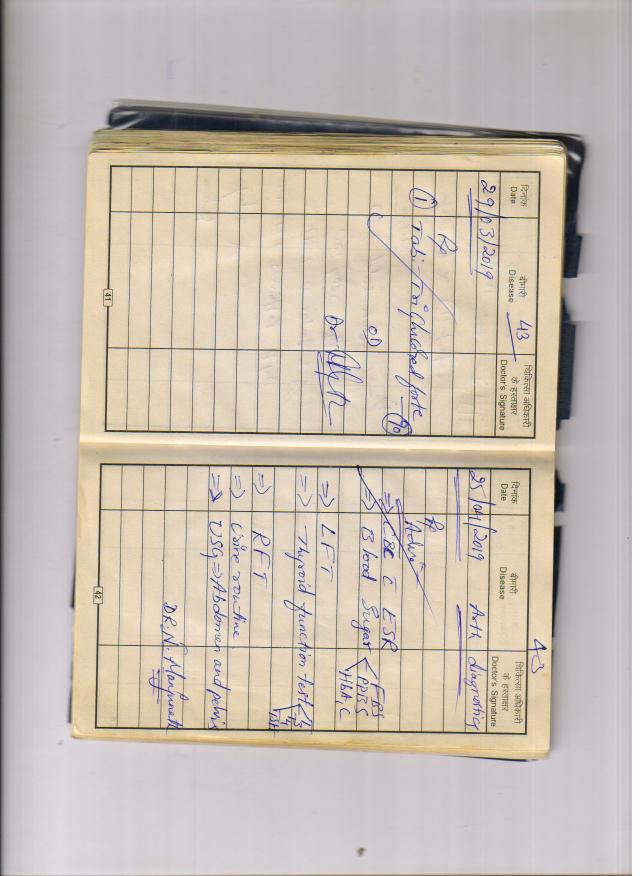 दिनांक
Date
बीमारी
Disease
चिकित्सा अधिकारी
के हस्ताक्षर
Doctor's Signature
43
29/03/2019
Rx
① Tab:- forte
OD
Dr
41
43
दिनांक
Date
बीमारी
Disease
चिकित्सा अधिकारी
के हस्ताक्षर
Doctor's Signature
25/04/2019 diagnostics
Rx
Advise
⇒ CBC c ESR
⇒ Blood Sugar < FBS
PPBS
HbA1C
⇒ LFT
⇒ Thyroid function test < T3
T4
TSH
⇒ RFT
⇒ Urine routine.
⇒ USG ⇒ Abdomen and pelvis
DR. N. Manjunath
42